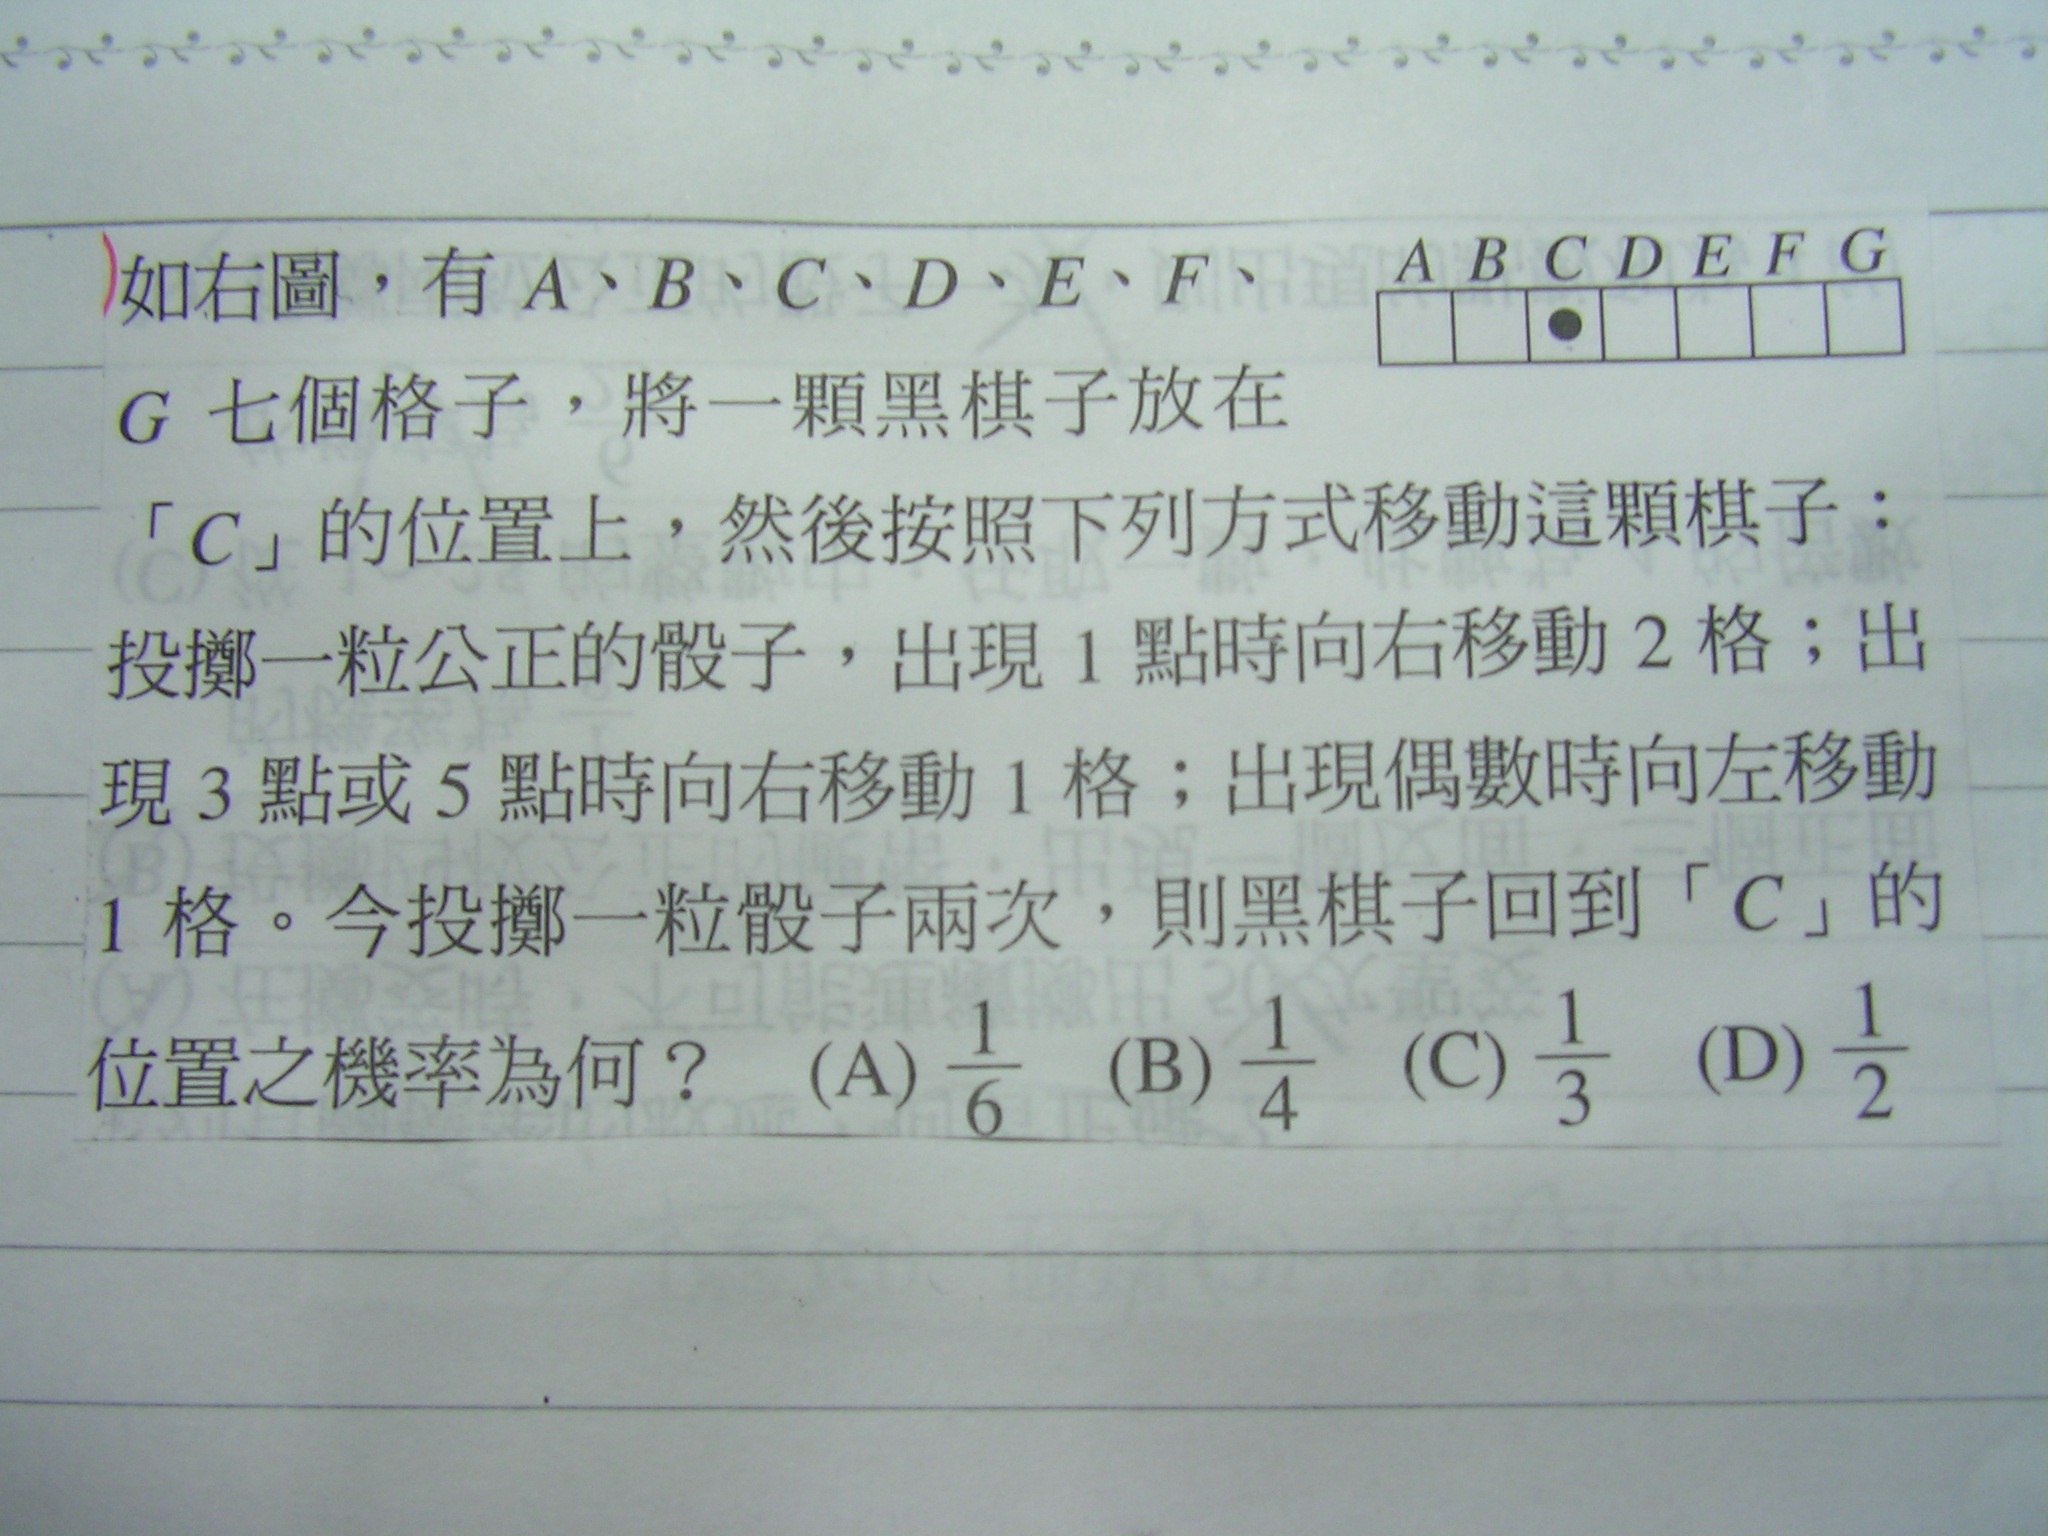 如右圖，有 A、B、C、D、E、F、
A B C D E F G
G 七個格子，將一顆黑棋子放在
「C」的位置上，然後按照下列方式移動這顆棋子：
投擲一粒公正的骰子，出現 1 點時向右移動 2 格；出
現 3 點或 5 點時向右移動 1 格；出現偶數時向左移動
1 格。今投擲一粒骰子兩次，則黑棋子回到「C」的
位置之機率為何？ (A) 1/6 (B) 1/4 (C) 1/3 (D) 1/2